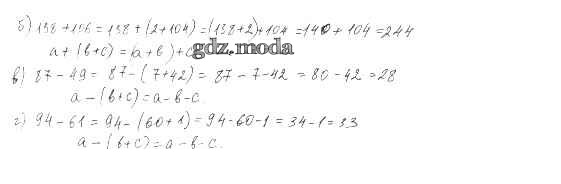 б) 138 + 106 = 138 + (2 + 104) = (138 + 2) + 104 = 140 + 104 = 244
a + (b + c) = (a + b) + c
gdz.moda
в) 87 - 49 = 87 - (7 + 42) = 87 - 7 - 42 = 80 - 42 = 28
a - (b + c) = a - b - c.
г) 94 - 61 = 94 - (60 + 1) = 94 - 60 - 1 = 34 - 1 = 33
a - (b + c) = a - b - c.